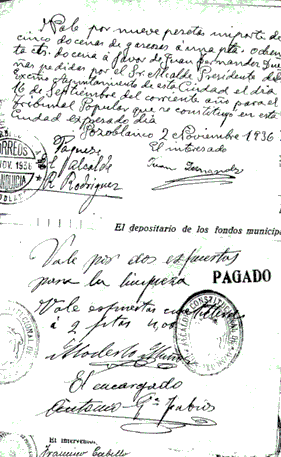 Vale por nueve pesetas importe de
cinco docenas de gaseosas á una pta. ochenta
cts. docena á favor de Juan Fernandez
pedidas por el Sr. Alcalde Presidente del
Excmo Ayuntamiento de esta Ciudad el dia
16 de Septiembre del corriente año para el
Tribunal Popular que se constituyó en esta
Ciudad expresado dia
Pozoblanco 2 Noviembre 1936
Páguese El interesado
El Alcalde Juan Fernandez
R. Rodriguez
CORREOS
NOV. 1936
FRANQUICIA
El depositario de los fondos municipa
Vale por dos espuertas
para la limpieza
PAGADO
Vale espuertas
á 2 ptas 4,00
Modesto
El encargado
Antonio Gª
ALCALDIA CONSTITUCIONAL DE
El interventor,
Francisco Cabello